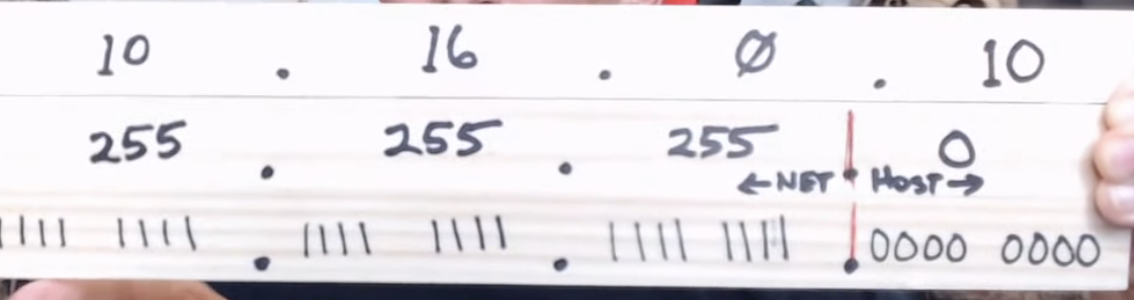 10 . 16 . 0 . 10
255 . 255 . 255 . 0
←NET HOST→
1111 1111 . 1111 1111 . 1111 1111 . 0000 0000